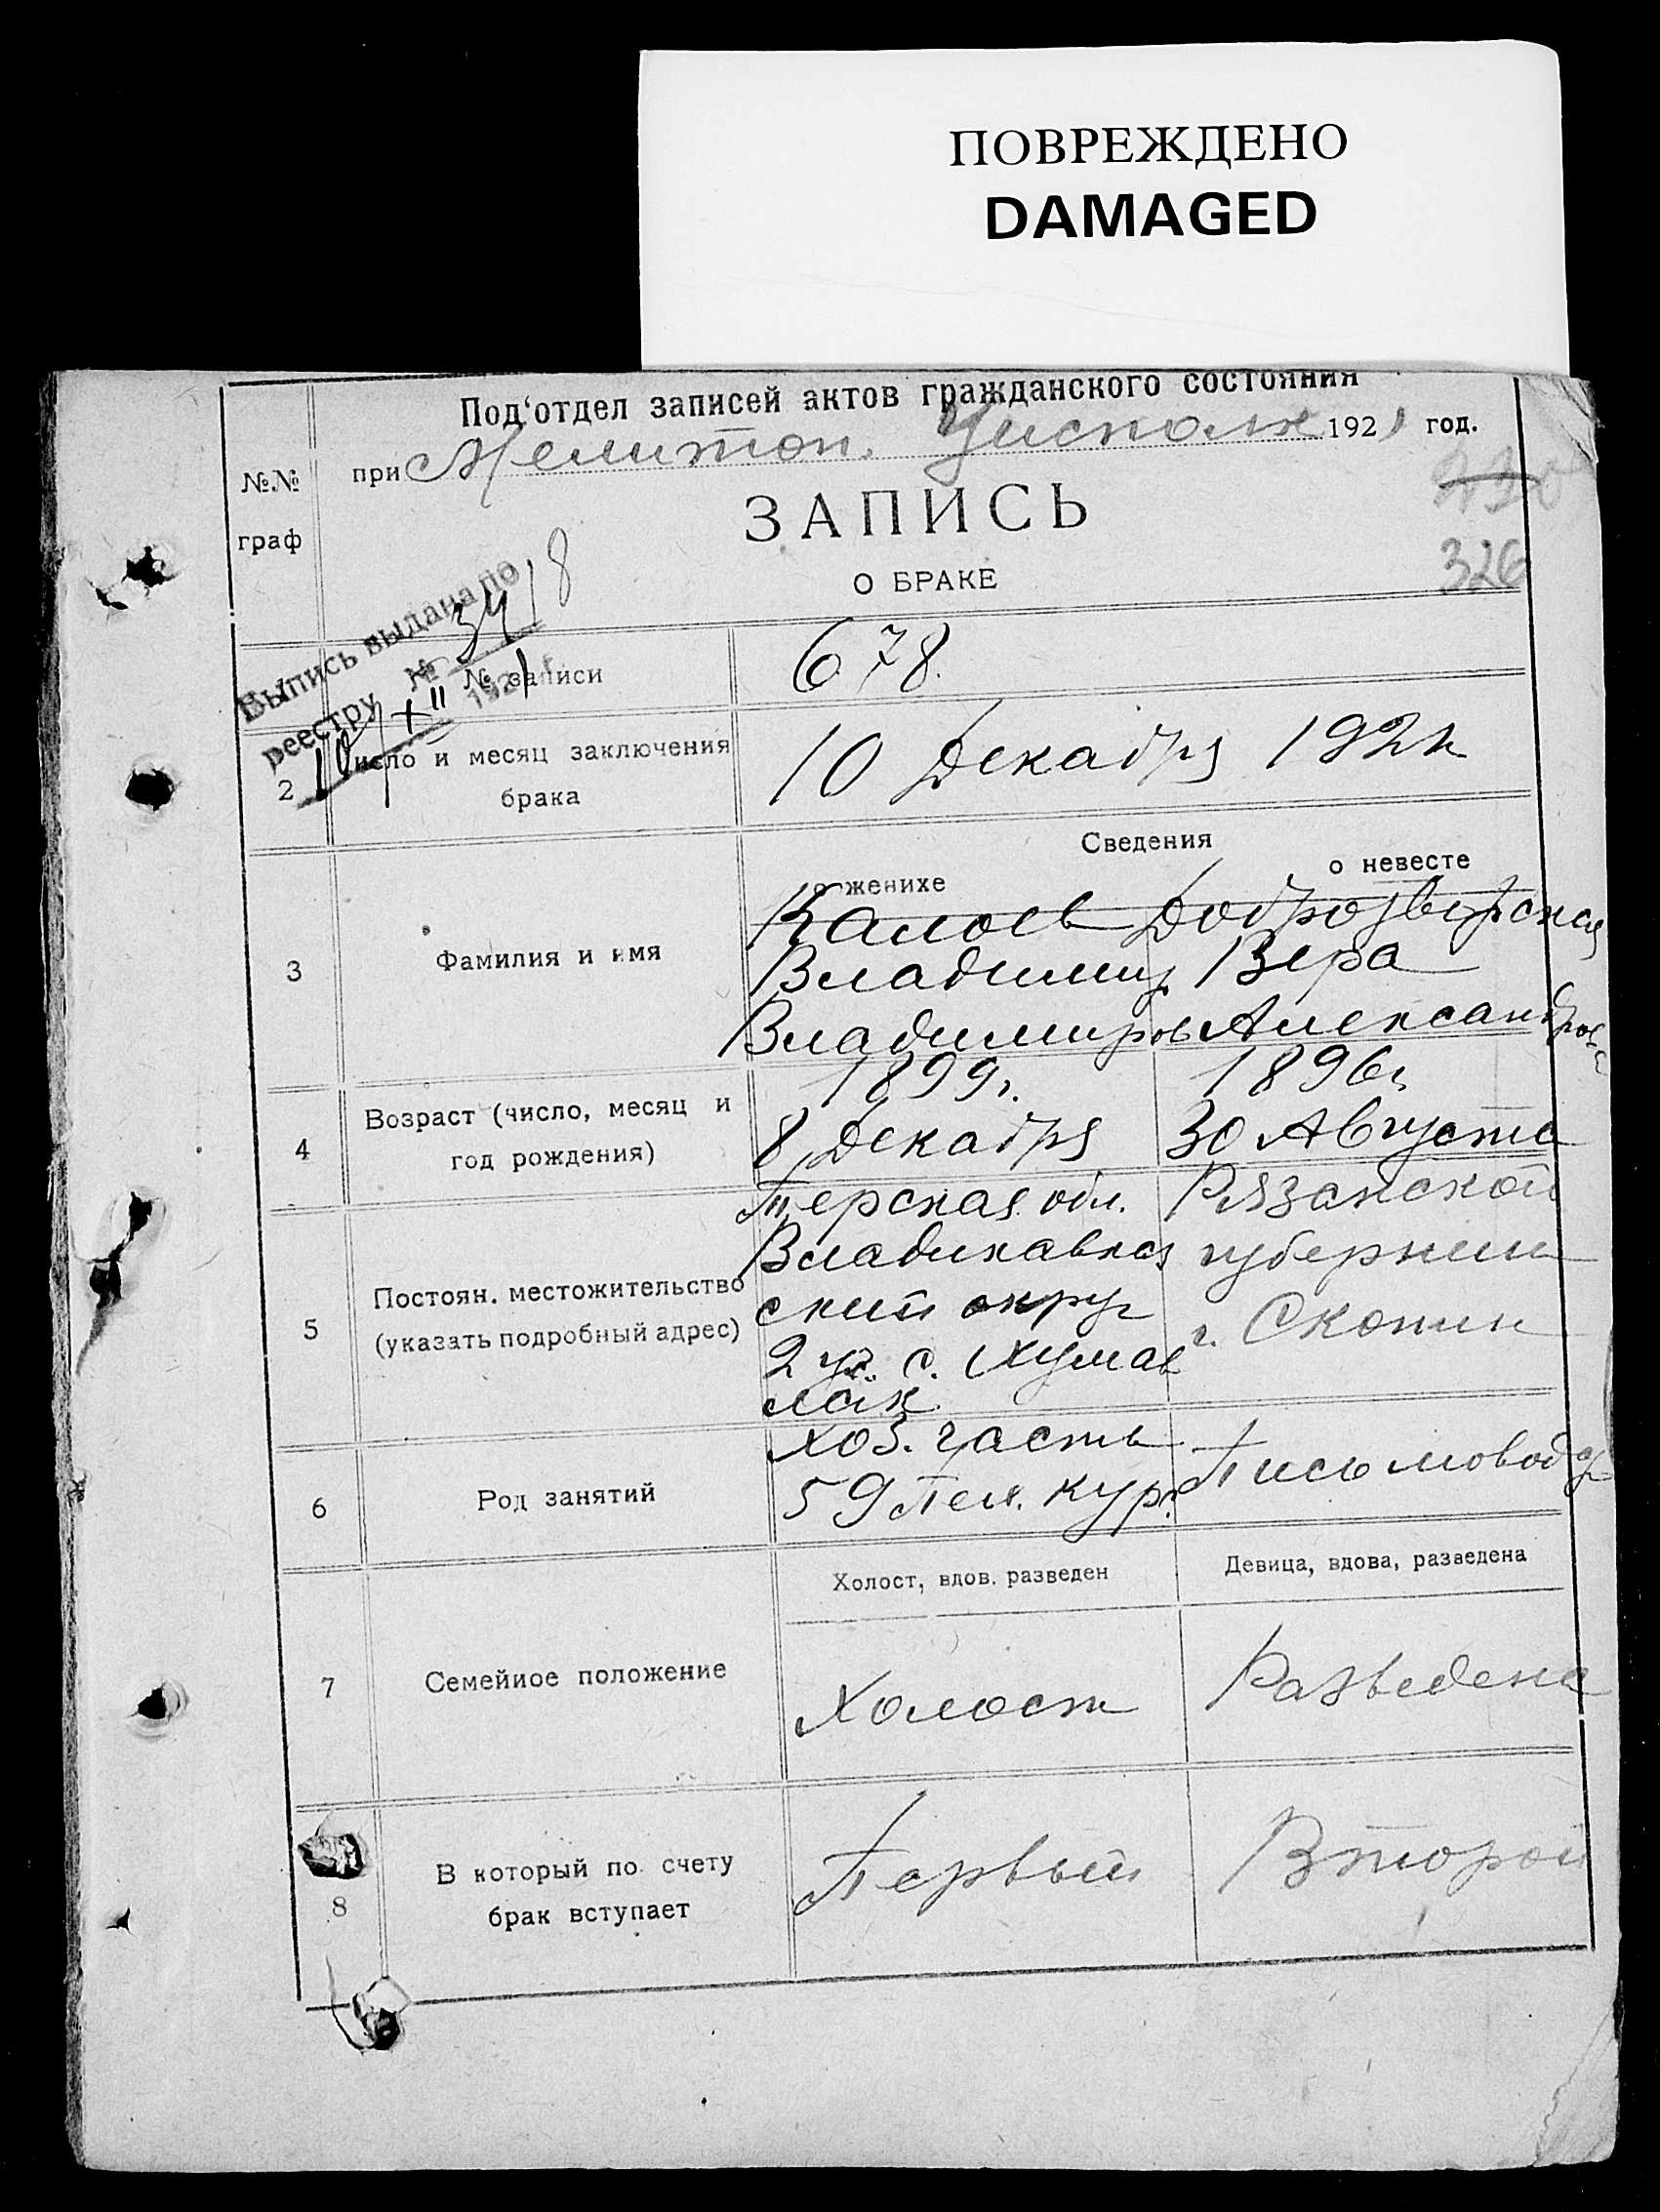 ПОВРЕЖДЕНО
DAMAGED
Под'отдел записей актов гражданского состояния
при Мелитоп. Уисполк 1921 год.
№№
граф
ЗАПИСЬ
О БРАКЕ
326
Выпись выдана по
реестру № 34/8
10/XII 1921 г.
№ записи
678.
2
Число и месяц заключения
брака
10 Декабря 192
Сведения
о женихе
о невесте
3
Фамилия и имя
Калоев
Владимир
Владимиров
Доброзверская
Вера
Александров
4
Возраст (число, месяц и
год рождения)
1899г.
8 Декабря
1896г
30 Августа
5
Постоян. местожительство
(указать подробный адрес)
Терская обл.
Владикавказ
ский округ
2 уч. с. Хумал
лак
Рязанской
губернии
г. Скопин
6
Род занятий
хоз. часть
59 Пех. кур.
Письмовод
7
Семейное положение
Холост, вдов. разведен
Девица, вдова, разведена
Холост
Разведена
8
В который по счету
брак вступает
Первый
Второй